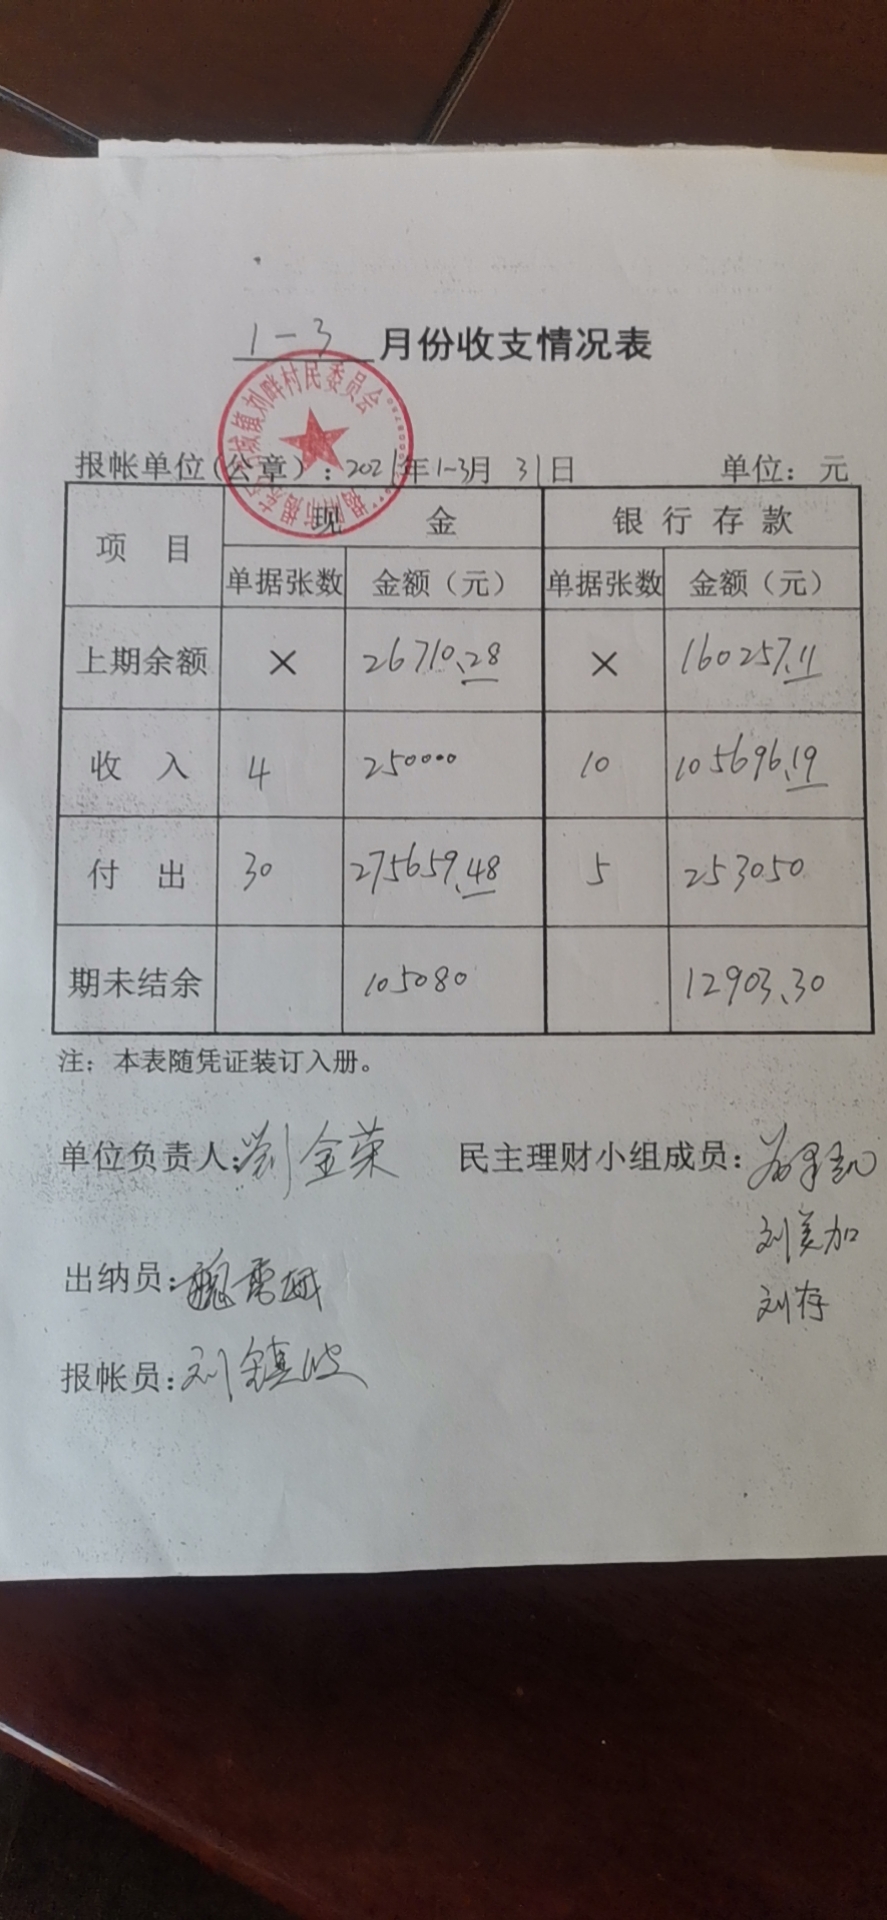 1-3 月份收支情况表
刘畔村民委员会
报帐单位(公章): 2021年1-3月 31日 单位: 元
项 目 现 金 银 行 存 款
单据张数 金额(元) 单据张数 金额(元)
上期余额 × 26710.28 × 160257.11
收 入 4 250000 10 105696.19
付 出 30 275659.48 5 253050
期未结余 105080 12903.30
注: 本表随凭证装订入册。
单位负责人: 刘金荣 民主理财小组成员:
刘美加
出纳员: 刘存
报帐员: 刘镇波